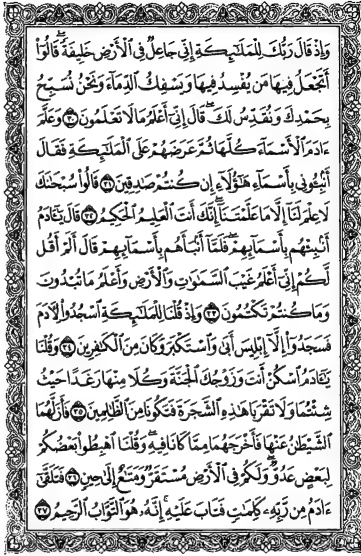 وَإِذْ قَالَ رَبُّكَ لِلْمَلَٰٓئِكَةِ إِنِّي جَاعِلٌ فِي ٱلْأَرْضِ خَلِيفَةً ۖ قَالُوٓا۟
أَتَجْعَلُ فِيهَا مَن يُفْسِدُ فِيهَا وَيَسْفِكُ ٱلدِّمَآءَ وَنَحْنُ نُسَبِّحُ
بِحَمْدِكَ وَنُقَدِّسُ لَكَ ۖ قَالَ إِنِّيٓ أَعْلَمُ مَا لَا تَعْلَمُونَ ٣٠ وَعَلَّمَ
ءَادَمَ ٱلْأَسْمَآءَ كُلَّهَا ثُمَّ عَرَضَهُمْ عَلَى ٱلْمَلَٰٓئِكَةِ فَقَالَ
أَنۢبِـُٔونِي بِأَسْمَآءِ هَٰٓؤُلَآءِ إِن كُنتُمْ صَٰدِقِينَ ٣١ قَالُوا۟ سُبْحَٰنَكَ
لَا عِلْمَ لَنَآ إِلَّا مَا عَلَّمْتَنَآ ۖ إِنَّكَ أَنتَ ٱلْعَلِيمُ ٱلْحَكِيمُ ٣٢ قَالَ يَٰٓـَٔادَمُ
أَنۢبِئْهُم بِأَسْمَآئِهِمْ ۖ فَلَمَّآ أَنۢبَأَهُم بِأَسْمَآئِهِمْ قَالَ أَلَمْ أَقُل
لَّكُمْ إِنِّيٓ أَعْلَمُ غَيْبَ ٱلسَّمَٰوَٰتِ وَٱلْأَرْضِ وَأَعْلَمُ مَا تُبْدُونَ
وَمَا كُنتُمْ تَكْتُمُونَ ٣٣ وَإِذْ قُلْنَا لِلْمَلَٰٓئِكَةِ ٱسْجُدُوا۟ لِـَٔادَمَ
فَسَجَدُوٓا۟ إِلَّآ إِبْلِيسَ أَبَىٰ وَٱسْتَكْبَرَ وَكَانَ مِنَ ٱلْكَٰفِرِينَ ٣٤ وَقُلْنَا
يَٰٓـَٔادَمُ ٱسْكُنْ أَنتَ وَزَوْجُكَ ٱلْجَنَّةَ وَكُلَا مِنْهَا رَغَدًا حَيْثُ
شِئْتُمَا وَلَا تَقْرَبَا هَٰذِهِ ٱلشَّجَرَةَ فَتَكُونَا مِنَ ٱلظَّٰلِمِينَ ٣٥ فَأَزَلَّهُمَا
ٱلشَّيْطَٰنُ عَنْهَا فَأَخْرَجَهُمَا مِمَّا كَانَا فِيهِ ۖ وَقُلْنَا ٱهْبِطُوا۟ بَعْضُكُمْ
لِبَعْضٍ عَدُوٌّ ۖ وَلَكُمْ فِي ٱلْأَرْضِ مُسْتَقَرٌّ وَمَتَٰعٌ إِلَىٰ حِينٍ ٣٦ فَتَلَقَّىٰٓ
ءَادَمُ مِن رَّبِّهِۦ كَلِمَٰتٍ فَتَابَ عَلَيْهِ ۚ إِنَّهُۥ هُوَ ٱلتَّوَّابُ ٱلرَّحِيمُ ٣٧